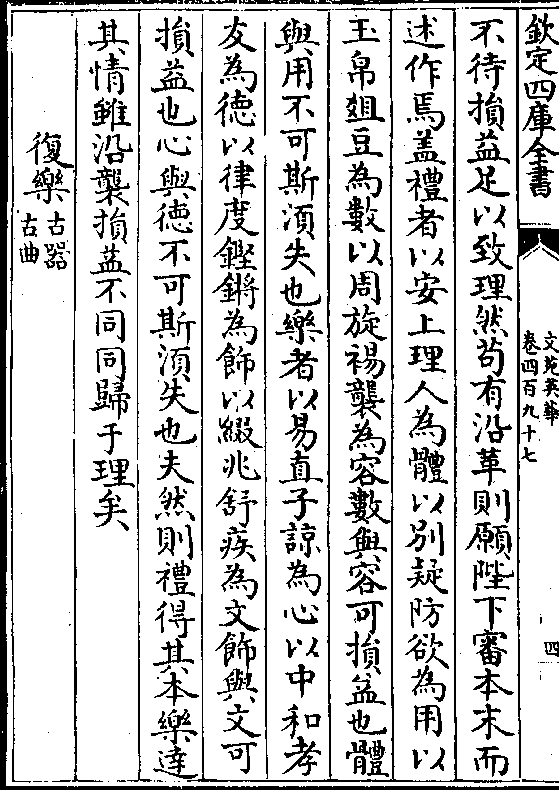 欽定四庫全書
文苑英華
卷四百九十七
四
不待損益足以致理然苟有沿革則願陛下審本末而
述作焉盖禮者以安上理人為體以别疑防欲為用以
玉帛爼豆為數以周旋裼襲為容數與容可損益也體
與用不可斯須失也樂者以易直子諒為心以中和孝
友為徳以律度鏗鏘為飾以綴兆舒疾為文飾與文可
損益也心與徳不可斯須失也夫然則禮得其本樂達
其情雖沿襲損益不同同歸于理矣
復樂古器古曲